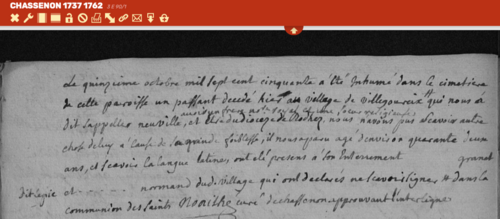 CHASSENON 1737 1762
Le quinzieme octobre mil sept cent cinquante a été inhumé dans le cimetiere
de cette paroisse un passant decedé hier au village de villegoureix qui nous a
dit sappeller neuville, et du diocèze de Rodhez, nous navons pas scavoir autre
chose de luy a cause de sa grande foiblesse, il nous a paru agé denviron quarante deux
ans, et scavoir la langue latine, ont eté presens a son Enterrement
et normand dudt village qui ont declarés ne scavoir signer dans la
communion des saints Rouilhe curé de chassenon approuvant l'interligne